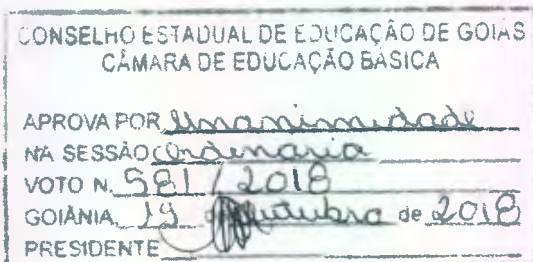 CONSELHO ESTADUAL DE EDUCAÇÃO DE GOIÁS
CÂMARA DE EDUCAÇÃO BÁSICA
APROVA POR unanimidade
NA SESSÃO ordinaria
VOTO N. 581 / 2018
GOIÂNIA, 19 outubro de 2018
PRESIDENTE